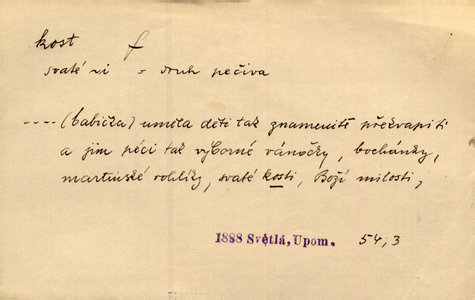 kost f
svaté ~i = druh pečiva
---- (babička) uměla děti tak znamenitě překvapiti
a jim péci tak výborné vánočky, bochánky,
martinské rohlíky, svaté kosti, Boží milosti,
1888 Světlá, Upom. 54,3